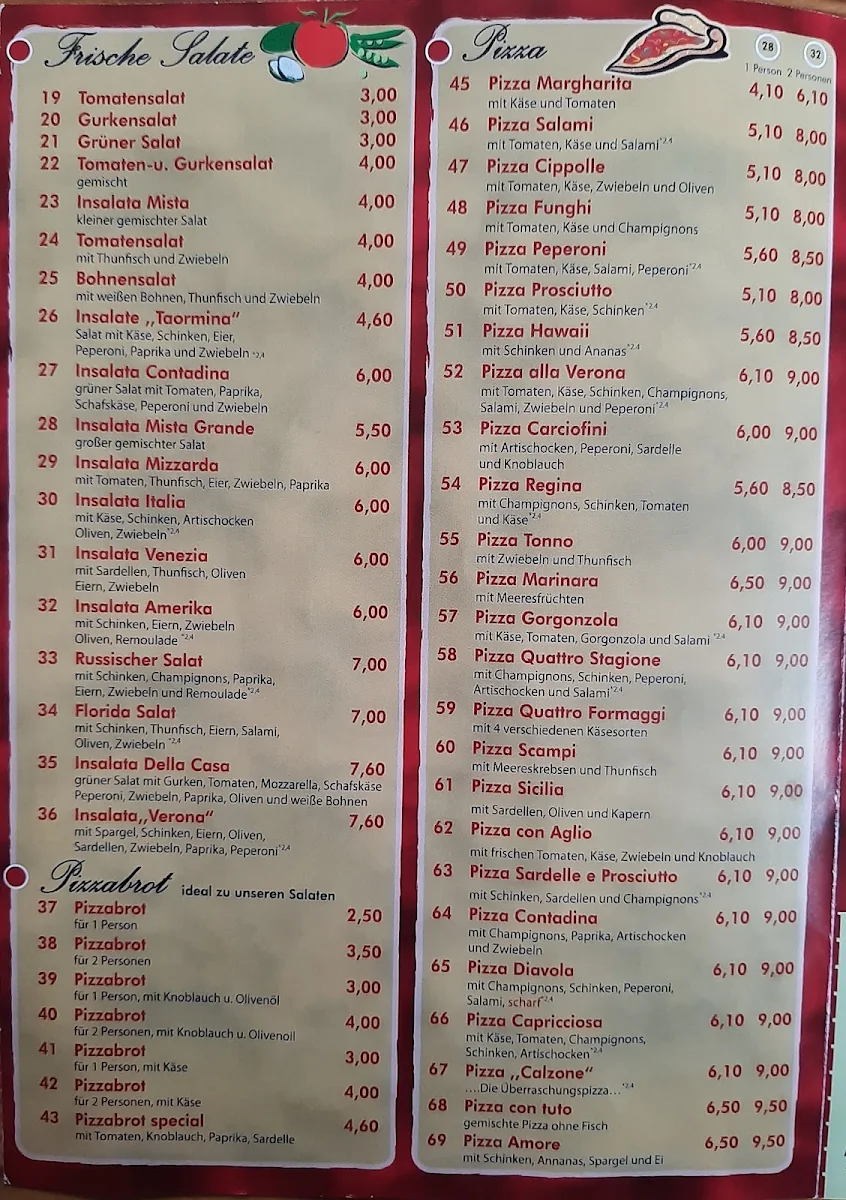 Frische Salate
19 Tomatensalat 3,00
20 Gurkensalat 3,00
21 Grüner Salat 3,00
22 Tomaten-u. Gurkensalat 4,00
gemischt
23 Insalata Mista 4,00
kleiner gemischter Salat
24 Tomatensalat 4,00
mit Thunfisch und Zwiebeln
25 Bohnensalat 4,00
mit weißen Bohnen, Thunfisch und Zwiebeln
26 Insalate „Taormina" 4,60
Salat mit Käse, Schinken, Eier,
Peperoni, Paprika und Zwiebeln *2,4
27 Insalata Contadina 6,00
grüner Salat mit Tomaten, Paprika,
Schafskäse, Peperoni und Zwiebeln
28 Insalata Mista Grande 5,50
großer gemischter Salat
29 Insalata Mizzarda 6,00
mit Tomaten, Thunfisch, Eier, Zwiebeln, Paprika
30 Insalata Italia 6,00
mit Käse, Schinken, Artischocken
Oliven, Zwiebeln*2,4
31 Insalata Venezia 6,00
mit Sardellen, Thunfisch, Oliven
Eiern, Zwiebeln
32 Insalata Amerika 6,00
mit Schinken, Eiern, Zwiebeln
Oliven, Remoulade *2,4
33 Russischer Salat 7,00
mit Schinken, Champignons, Paprika,
Eiern, Zwiebeln und Remoulade*2,4
34 Florida Salat 7,00
mit Schinken, Thunfisch, Eiern, Salami,
Oliven, Zwiebeln *2,4
35 Insalata Della Casa 7,60
grüner Salat mit Gurken, Tomaten, Mozzarella, Schafskäse
Peperoni, Zwiebeln, Paprika, Oliven und weiße Bohnen
36 Insalata„Verona" 7,60
mit Spargel, Schinken, Eiern, Oliven,
Sardellen, Zwiebeln, Paprika, Peperoni*2,4
Pizzabrot ideal zu unseren Salaten
37 Pizzabrot 2,50
für 1 Person
38 Pizzabrot 3,50
für 2 Personen
39 Pizzabrot 3,00
für 1 Person, mit Knoblauch u. Olivenöl
40 Pizzabrot 4,00
für 2 Personen, mit Knoblauch u. Olivenöl
41 Pizzabrot 3,00
für 1 Person, mit Käse
42 Pizzabrot 4,00
für 2 Personen, mit Käse
43 Pizzabrot special 4,60
mit Tomaten, Knoblauch, Paprika, Sardelle
Pizza 28 32
1 Person 2 Personen
45 Pizza Margharita 4,10 6,10
mit Käse und Tomaten
46 Pizza Salami 5,10 8,00
mit Tomaten, Käse und Salami*2,4
47 Pizza Cippolle 5,10 8,00
mit Tomaten, Käse, Zwiebeln und Oliven
48 Pizza Funghi 5,10 8,00
mit Tomaten, Käse und Champignons
49 Pizza Peperoni 5,60 8,50
mit Tomaten, Käse, Salami, Peperoni*2,4
50 Pizza Prosciutto 5,10 8,00
mit Tomaten, Käse, Schinken*2,4
51 Pizza Hawaii 5,60 8,50
mit Schinken und Ananas*2,4
52 Pizza alla Verona 6,10 9,00
mit Tomaten, Käse, Schinken, Champignons,
Salami, Zwiebeln und Peperoni*2,4
53 Pizza Carciofini 6,00 9,00
mit Artischocken, Peperoni, Sardelle
und Knoblauch
54 Pizza Regina 5,60 8,50
mit Champignons, Schinken, Tomaten
und Käse*2,4
55 Pizza Tonno 6,00 9,00
mit Zwiebeln und Thunfisch
56 Pizza Marinara 6,50 9,00
mit Meeresfrüchten
57 Pizza Gorgonzola 6,10 9,00
mit Käse, Tomaten, Gorgonzola und Salami *2,4
58 Pizza Quattro Stagione 6,10 9,00
mit Champignons, Schinken, Peperoni,
Artischocken und Salami*2,4
59 Pizza Quattro Formaggi 6,10 9,00
mit 4 verschiedenen Käsesorten
60 Pizza Scampi 6,10 9,00
mit Meereskrebsen und Thunfisch
61 Pizza Sicilia 6,10 9,00
mit Sardellen, Oliven und Kapern
62 Pizza con Aglio 6,10 9,00
mit frischen Tomaten, Käse, Zwiebeln und Knoblauch
63 Pizza Sardelle e Prosciutto 6,10 9,00
mit Schinken, Sardellen und Champignons*2,4
64 Pizza Contadina 6,10 9,00
mit Champignons, Paprika, Artischocken
und Zwiebeln
65 Pizza Diavola 6,10 9,00
mit Champignons, Schinken, Peperoni,
Salami, scharf*2,4
66 Pizza Capricciosa 6,10 9,00
mit Käse, Tomaten, Champignons,
Schinken, Artischocken*2,4
67 Pizza „Calzone" 6,10 9,00
....Die Überraschungspizza...*2,4
68 Pizza con tuto 6,50 9,50
gemischte Pizza ohne Fisch
69 Pizza Amore 6,50 9,50
mit Schinken, Annanas, Spargel und Ei